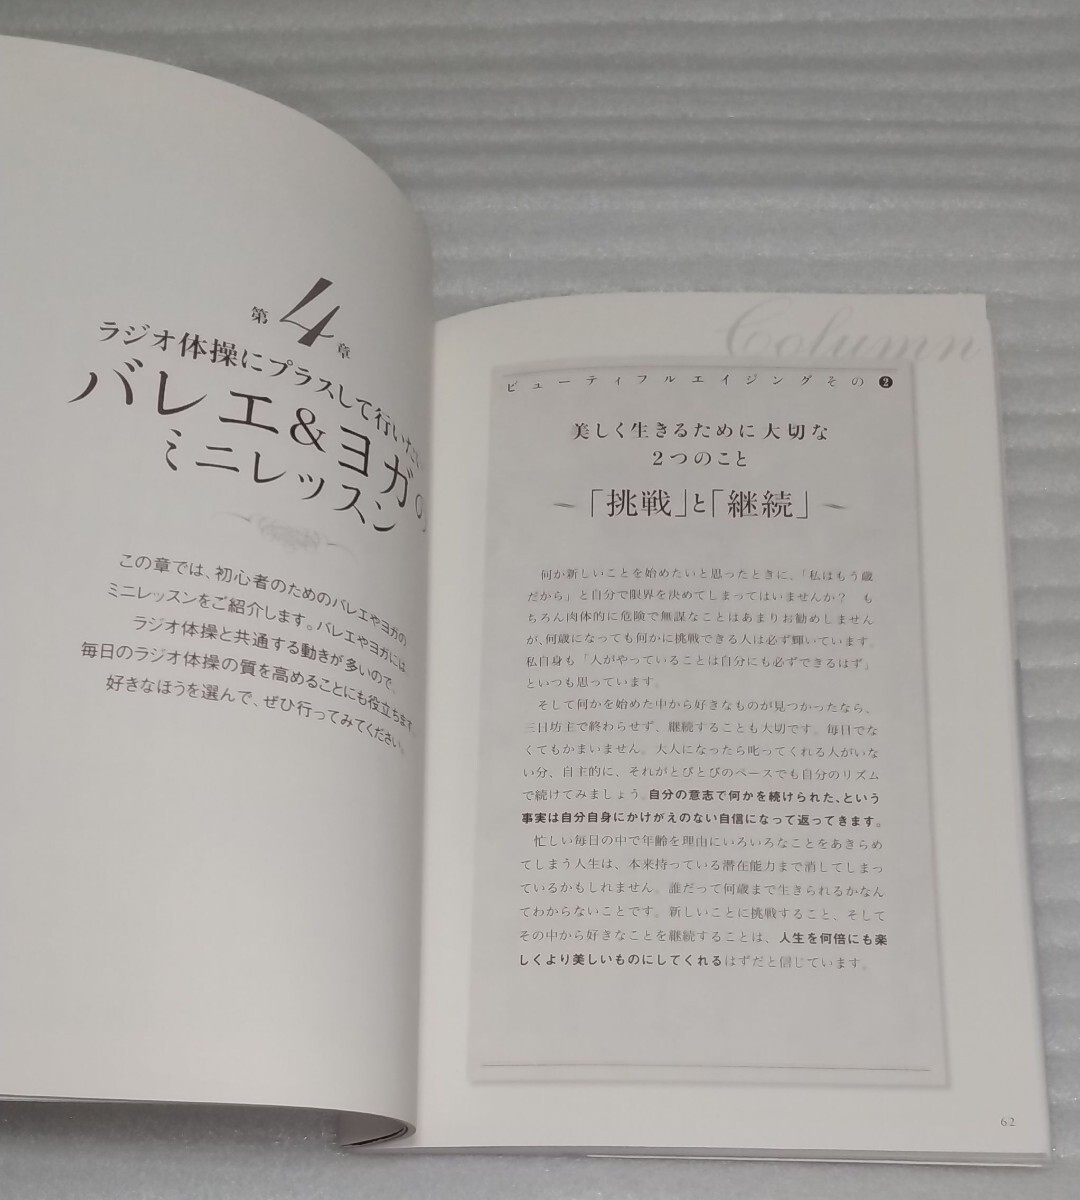 第4章
ラジオ体操にプラスして行いたい
バレエ&ヨガの
ミニレッスン
この章では、初心者のためのバレエやヨガの
ミニレッスンをご紹介します。バレエやヨガには
ラジオ体操と共通する動きが多いので、
毎日のラジオ体操の質を高めることにも役立ちます。
好きなほうを選んで、ぜひ行ってみてください。
Column
ビューティフルエイジングその❷
美しく生きるために大切な
2つのこと
「挑戦」と「継続」
何か新しいことを始めたいと思ったときに、「私はもう歳
だから」と自分で限界を決めてしまってはいませんか?　も
ちろん肉体的に危険で無謀なことはあまりお勧めしません
が、何歳になっても何かに挑戦できる人は必ず輝いています。
私自身も「人がやっていることは自分にも必ずできるはず」
といつも思っています。
そして何かを始めた中から好きなものが見つかったなら、
三日坊主で終わらせず、継続することも大切です。毎日でな
くてもかまいません。大人になったら叱ってくれる人がいな
い分、自主的に、それがとびとびのペースでも自分のリズム
で続けてみましょう。自分の意志で何かを続けられた、という
事実は自分自身にかけがえのない自信になって返ってきます。
忙しい毎日の中で年齢を理由にいろいろなことをあきらめ
てしまう人生は、本来持っている潜在能力まで消してしまっ
ているかもしれません。誰だって何歳まで生きられるかなん
てわからないことです。新しいことに挑戦すること、そして
その中から好きなことを継続することは、人生を何倍にも楽
しくより美しいものにしてくれるはずだと信じています。
62